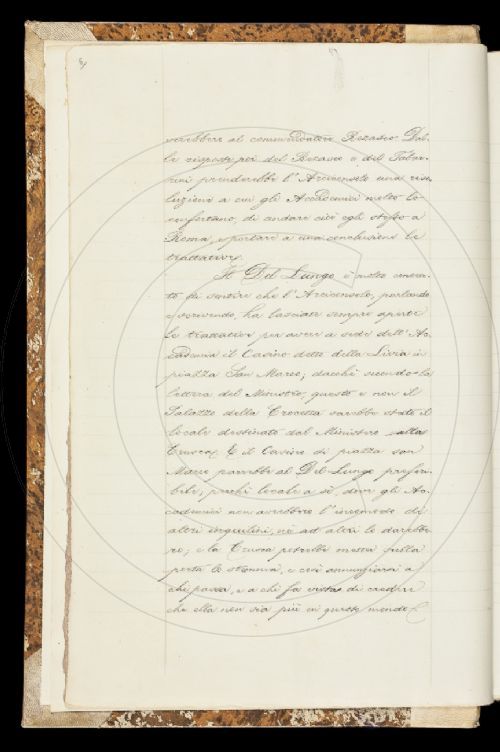 verrebbe al commendatore Bezasse. Dal-
le risposte poi del Bezasse e del Tabar-
rini prenderebbe l'Arciconsolo una riso-
luzione a cui gli Accademici molto lo
confortano, di andare cioè egli stesso a
Roma, e portare a una conclusione le
trattative.
Il Del Lungo è molto conten-
to di sentire che l'Arciconsolo, parlando
e scrivendo, ha lasciate sempre aperte
le trattative per avere a sede dell'Ac-
cademia il Casino detto della Livia in
piazza San Marco; dacchè secondo la
lettera del Ministro, questo e non il
Palazzo della Crocetta sarebbe stato il
locale destinato dal Ministro alla
Crusca. E il Casino di piazza San
Marco parrebbe al Del Lungo preferi-
bile, perchè locale a sè, dove gli Ac-
cademici non avrebbero l'incomodo di
altri inquilini, nè ad altri lo darebbe-
ro; e la Crusca potrebbe metter sulla
porta lo stemma, e così annunziarsi a
chi passa, e a chi fa vista di credere
che ella non sia più in questo mondo.